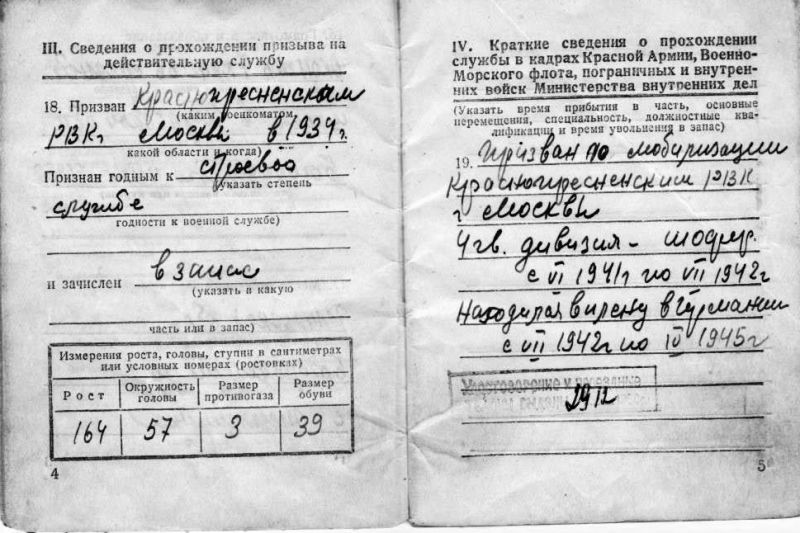 III. Сведения о прохождении призыва на
действительную службу
18. Призван Краснопресненским
(каким военкоматом,
РВК г. Москвы в 1934 г.
какой области и когда)
Признан годным к строевой
(указать степень
службе
годности к военной службе)
и зачислен в запас
(указать в какую
часть или в запас)
Измерения роста, головы, ступни в сантиметрах
или условных номерах (ростовках)
Рост Окружность головы Размер противогаза Размер обуви
164 57 3 39
4
IV. Краткие сведения о прохождении
службы в кадрах Красной Армии, Военно-
Морского флота, пограничных и внутрен-
них войск Министерства внутренних дел
(Указать время прибытия в часть, основные
перемещения, специальность, должностные ква-
лификации и время увольнения в запас)
19. Призван по мобилизации
Краснопресненским РВК
г Москвы
4 гв. дивизия - шофер.
с VI 1941г по VII 1942г
Находился в плену в Германии
с VII 1942г по IV 1945г
5